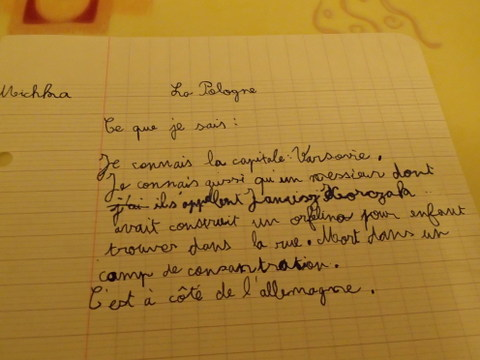 Michka
La Pologne
Ce que je sais :
Je connais la capitale : Varsovie.
Je connais aussi qu'un messieur dont
j'ai ils appellent Janusz Korczak
avait construit un orfelina pour enfant
trouver dans la rue. Mort dans un
camp de consantration.
C'est à côté de l'allemagne.